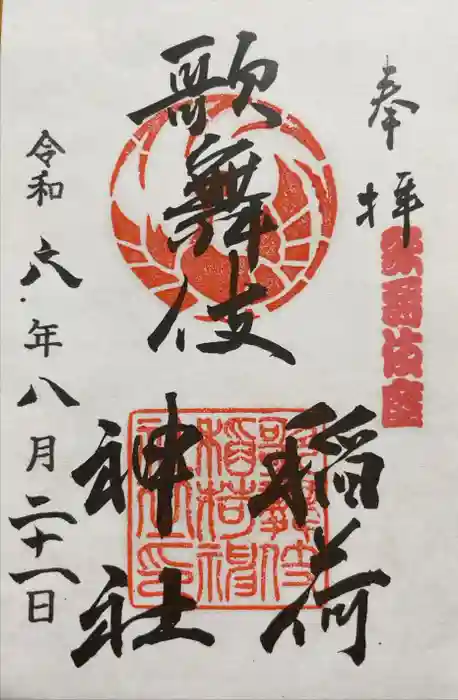 奉拝
歌舞伎座
歌舞伎
稲荷
神社
歌舞伎稲荷神社印
令和六年八月二十一日